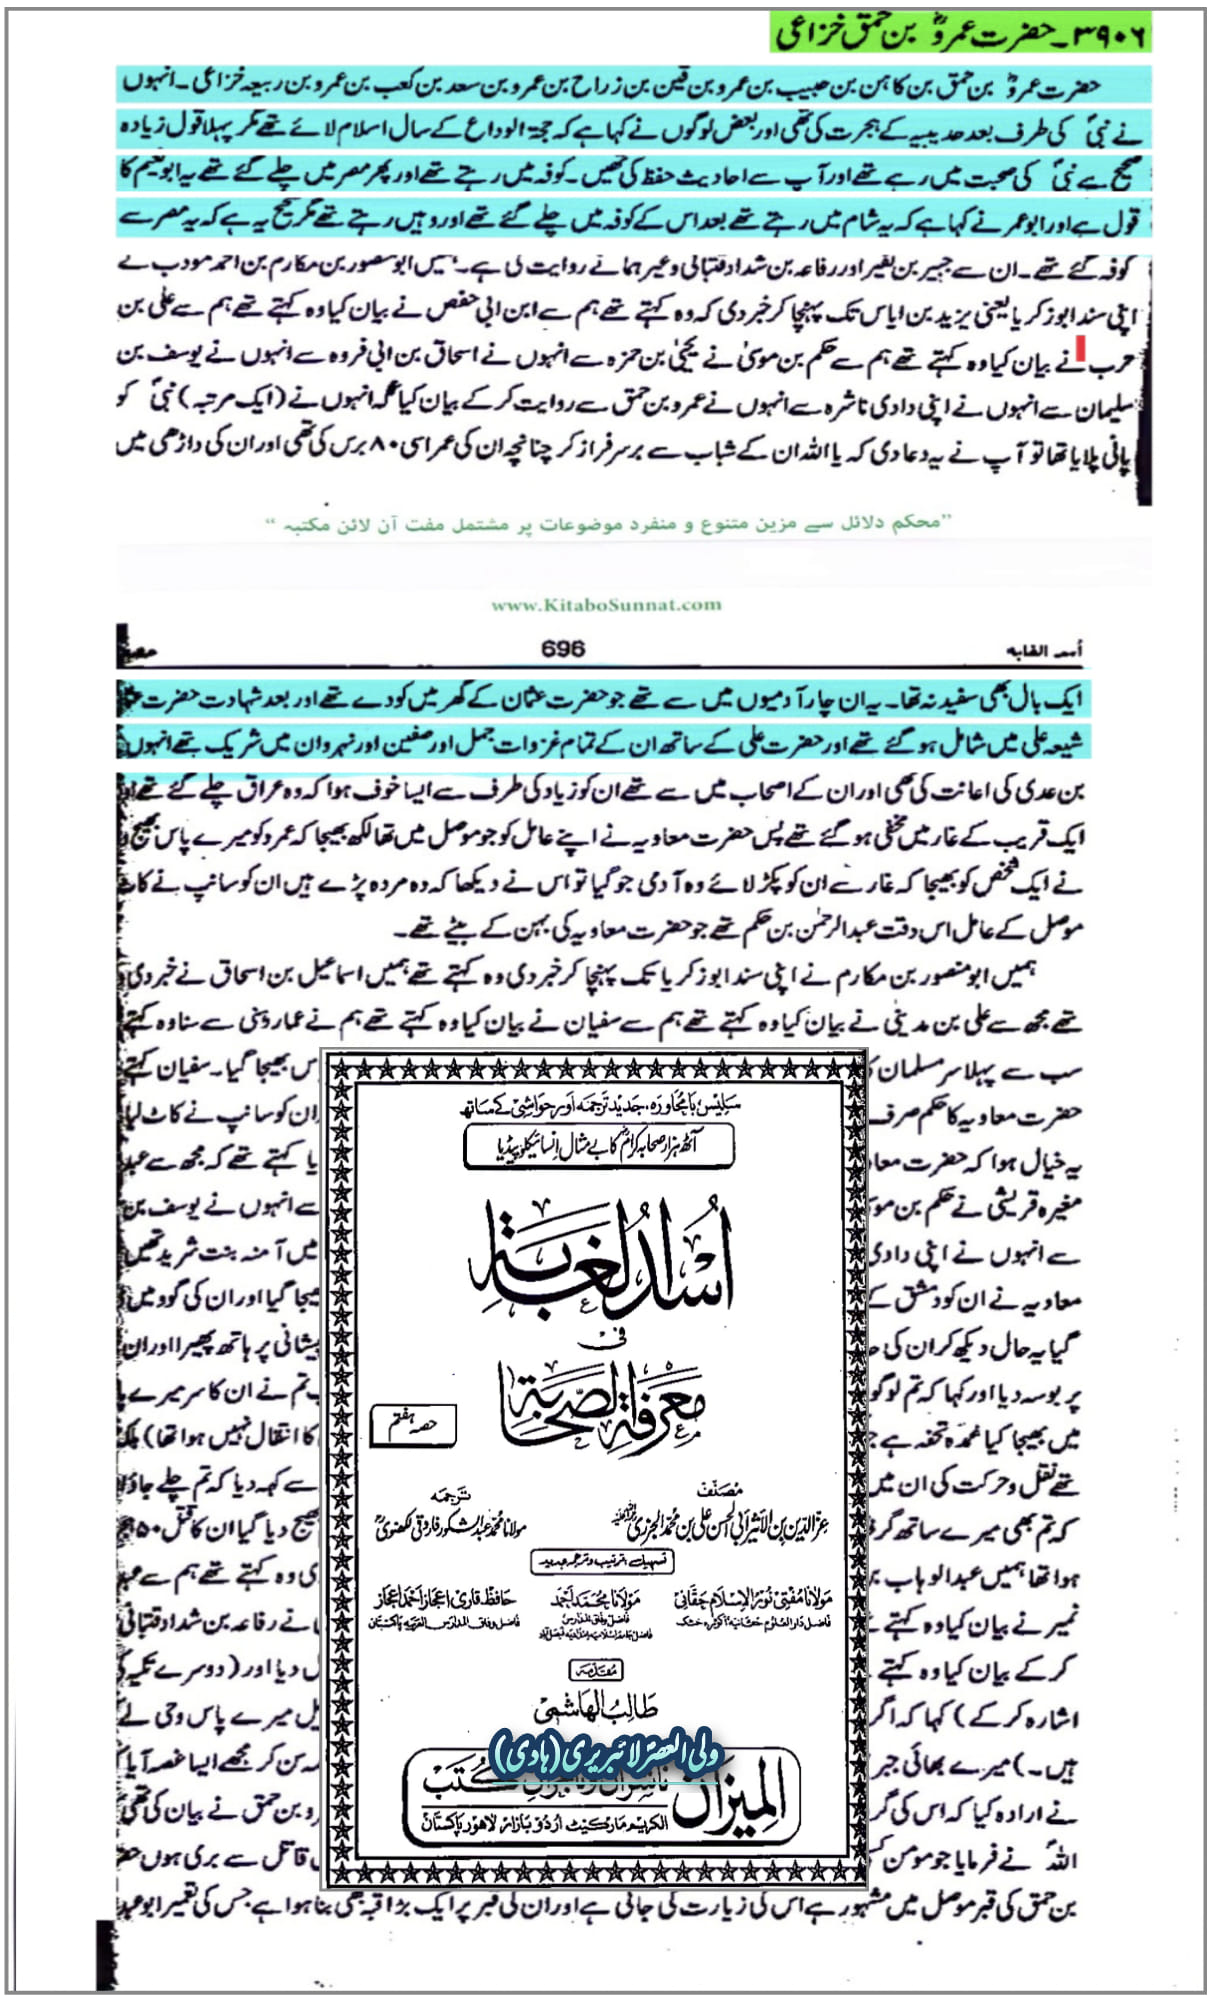 ۳۹۰۶۔ حضرت عمروؓ بن حمق خزاعی
حضرت عمروؓ بن حمق بن کاہن بن حبیب بن عمرو بن قین بن زراح بن عمرو بن سعد بن کعب بن عمرو بن ربیعہ خزاعی۔ انہوں
نے نبیؐ کی طرف بعد حدیبیہ کے ہجرت کی تھی اور بعض لوگوں نے کہا ہے کہ حجۃ الوداع کے سال اسلام لائے تھے مگر پہلا قول زیادہ
صحیح ہے نبیؐ کی صحبت میں رہے تھے اور آپ سے احادیث حفظ کی تھیں۔ کوفہ میں رہتے تھے اور پھر مصر میں چلے گئے تھے یہ ابو نعیم کا
قول ہے اور ابو عمر نے کہا ہے کہ یہ شام میں رہتے تھے بعد اس کے کوفہ میں چلے گئے تھے اور وہیں رہتے تھے مگر صحیح یہ ہے کہ یہ مصر سے
کوفہ گئے تھے۔ ان سے جبیر بن نفیر اور رفاعہ بن شداد قتبانی وغیرہما نے روایت کی ہے۔ ہمیں ابو منصور بن مکارم بن احمد مودب نے
اپنی سند ابو زکریا یعنی یزید بن ایاس تک پہنچا کر خبر دی کہ وہ کہتے تھے ہم سے ابن ابی حفص نے بیان کیا وہ کہتے تھے ہم سے علی بن
حرب نے بیان کیا وہ کہتے تھے ہم سے حکم بن موسیٰ نے یحییٰ بن حمزہ سے انہوں نے اسحاق بن ابی فروہ سے انہوں نے یوسف بن
سلیمان سے انہوں نے اپنی دادی ناشرہ سے انہوں نے عمرو بن حمق سے روایت کر کے بیان کیا کہ انہوں نے (ایک مرتبہ) نبیؐ کو
پانی پلایا تھا تو آپ نے یہ دعا دی کہ یا اللہ ان کے شباب سے بر سرفراز کر چنانچہ ان کی عمر اسی ۸۰ برس کی تھی اور ان کی داڑھی میں
"محکم دلائل سے مزین متنوع و منفرد موضوعات پر مشتمل مفت آن لائن مکتبہ"
www.KitaboSunnat.com
اُسد الغابہ 696
ایک بال بھی سفید نہ تھا۔ یہ ان چار آدمیوں میں سے تھے جو حضرت عثمان کے گھر میں کودے تھے اور بعد شہادت حضرت
شیعہ علی میں شامل ہو گئے تھے اور حضرت علی کے ساتھ ان کے تمام غزوات جمل اور صفین اور نہروان میں شریک تھے انہوں
بن عدی کی اعانت کی تھی اور ان کے اصحاب میں سے تھے ان کو زیاد کی طرف سے ایسا خوف ہوا کہ وہ عراق چلے گئے تھے
ایک قریب کے غار میں مخفی ہو گئے تھے پس حضرت معاویہ نے اپنے عامل کو جو موصل میں تھا لکھ بھیجا کہ عمرو کو میرے پاس بھیج
نے ایک شخص کو بھیجا کہ غار سے ان کو پکڑ لائے وہ آدمی جو گیا تو اس نے دیکھا کہ وہ مردہ پڑے ہیں ان کو سانپ نے کاٹ
موصل کے عامل اس وقت عبدالرحمٰن بن حکم تھے جو حضرت معاویہ کی بہن کے بیٹے تھے۔
ہمیں ابو منصور بن مکارم نے اپنی سند ابو زکریا تک پہنچا کر خبر دی وہ کہتے تھے ہمیں اسماعیل بن اسحاق نے خبر دی
تھے مجھ سے علی بن مدینی نے بیان کیا وہ کہتے تھے ہم سے سفیان نے بیان کیا وہ کہتے تھے ہم نے عمار دہنی سے سنا وہ کہتے
سب سے پہلا سر مسلمان س بھیجا گیا۔ سفیان کہتے
حضرت معاویہ کا حکم صرف ان کو سانپ نے کاٹ لیا
یہ خیال ہوا کہ حضرت معا یا کہتے تھے کہ مجھ سے
مغیرہ قریشی نے حکم بن مو سے انہوں نے یوسف بن
سے انہوں نے اپنی دادی میں آمنہ بنت شرید تھیں
معاویہ نے ان کو دمشق کے بھیجا گیا اور ان کی گود میں
گیا یہ حال دیکھ کر ان کی پیشانی پر ہاتھ پھیرا اور ان
پر بوسہ دیا اور کہا کہ تم لوگو تم نے ان کا سر میرے
میں بھیجا کیا عمدہ تحفہ ہے کا انتقال نہیں ہوا تھا)
تھے نقل و حرکت کی ان میں سے کہہ دیا کہ تم چلے جاؤ
کہ تم بھی میرے ساتھ گرف بھیج دیا گیا ان کا قتل ۵۰
ہوا تھا ہمیں عبدالوہاب ی وہ کہتے تھے ہم سے
نمیر نے بیان کیا وہ کہتے نے رفاعہ بن شداد قتبانی
کر کے بیان کیا وہ کہتے دیا اور (دوسرے تکیہ
اشارہ کر کے) کہا کہ اگر یل میرے پاس وحی لے
ہیں۔) میرے بھائی جبر سن کر مجھے ایسا غصہ آیا
نے ارادہ کیا کہ اس کی گر و بن حمق نے بیان کی تھی
اللہؐ نے فرمایا جو مومن قاتل سے بری ہوں
بن حمق کی قبر موصل میں مشہور ہے اس کی زیارت کی جاتی ہے اور ان کی قبر پر ایک بڑا قبہ بھی بنا ہوا ہے جس کی تعمیر ابو
سلیس بامحاورہ، جدید ترجمہ اور حواشی کے ساتھ
آٹھ ہزار صحابہ کرامؓ کا بے مثال انسائیکلوپیڈیا
اُسد الغابۃ
فی
معرفۃ الصحابۃ
حصہ ہفتم
مصنف
عزالدین بن الاثیر ابی الحسن علی بن محمد الجزری
ترجمہ
مولانا محمد عبدالشکور فاروقی لکھنوی
تسہیل، ترتیب و ترجمہ جدید
مولانا مفتی نور الاسلام حقانی مولانا محمد احمد حافظ قاری اعجاز احمد اعجاز
فاضل دار العلوم حقانیہ اکوڑہ خٹک فاضل وفاق المدارس فاضل وفاق المدارس العربیہ پاکستان
مقدمہ
طالب الہاشمی
ولی العصر لائبریری (ہادی)
المیزان ناشران و تاجران کتب
الکریم مارکیٹ اردو بازار لاہور پاکستان